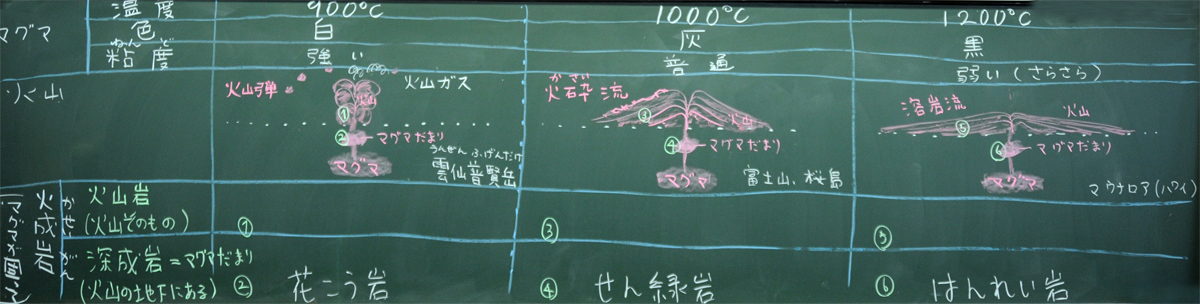 マグマ
温度 900℃ 1000℃ 1200℃
色 白 灰 黒
ねんど
粘度 強い 普通 弱い(さらさら)
火山
火山弾
火山ガス
火山
①
②
マグマだまり
マグマ
うんぜん ふげんだけ
雲仙普賢岳
かさい
火砕流
③
火山
④
マグマだまり
マグマ
富士山、桜島
溶岩流
⑤
火山
⑥
マグマだまり
マグマ
マウナロア(ハワイ)
かせいがん
火成岩
火山岩
(火山そのもの)
① ③ ⑤
深成岩=マグマだまり
(火山の地下にある)
② 花こう岩 ④ せん緑岩 ⑥ はんれい岩